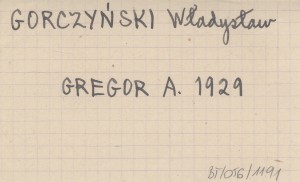 GORCZYŃSKI Władysław
GREGOR A. 1929
BI/056/1191